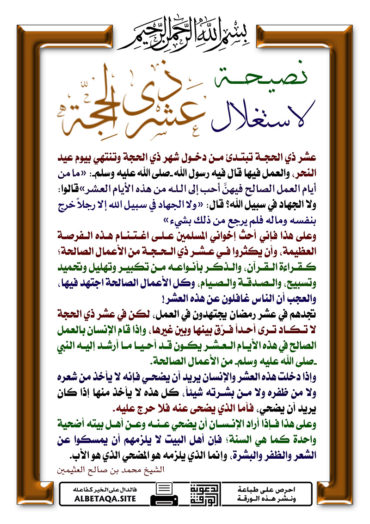 بسم الله الرحمن الرحيم
نصيحة
لاستغلال
عشر ذي الحجة
عشر ذي الحجة تبتدئ من دخول شهر ذي الحجة وتنتهي بيوم عيد
النحر، والعمل فيها قال فيه رسول الله ـصلى الله عليه وسلمـ: «ما من
أيام العمل الصالح فيهنَّ أحب إلى الله من هذه الأيام العشر»قالوا:
ولا الجهاد في سبيل الله؟ قال: «ولا الجهاد في سبيل الله إلا رجلاً خرج
بنفسه وماله فلم يرجع من ذلك بشيء»
وعلى هذا فإني أحثّ إخواني المسلمين على اغتنام هذه الفرصة
العظيمة، وأن يكثروا في عشر ذي الحجة من الأعمال الصالحة؛
كقراءة القرآن، والذكر بأنواعه من تكبير وتهليل وتحميد
وتسبيح، والصدقة والصيام، وكل الأعمال الصالحة اجتهد فيها،
والعجب أن الناس غافلون عن هذه العشر!
تجدهم في عشر رمضان يجتهدون في العمل، لكن في عشر ذي الحجة
لا تكاد ترى أحداً فرّق بينها وبين غيرها، وإذا قام الإنسان بالعمل
الصالح في هذه الأيام العشر يكون قد أحيا ما أرشد إليه النبي
ـصلى الله عليه وسلمـ من الأعمال الصالحة.
وإذا دخلت هذه العشر والإنسان يريد أن يضحي فإنه لا يأخذ من شعره
ولا من ظفره ولا من بشرته شيئاً، كل هذه لا يأخذ منها إذا كان
يريد أن يضحي، فأما الذي يضحى عنه فلا حرج عليه.
وعلى هذا فإذا أراد الإنسان أن يضحي عنه وعن أهل بيته أضحية
واحدة كما هي السنة؛ فإن أهل البيت لا يلزمهم أن يمسكوا عن
الشعر والظفر والبشرة، وإنما الذي يلزمه هو المضحي الذي هو الأب.
الشيخ محمد بن صالح العثيمين
احرص على طباعة
ونشر هذه الورقة
الدعوية
فالدال على الخير كفاعله
ALBETAQA.SITE